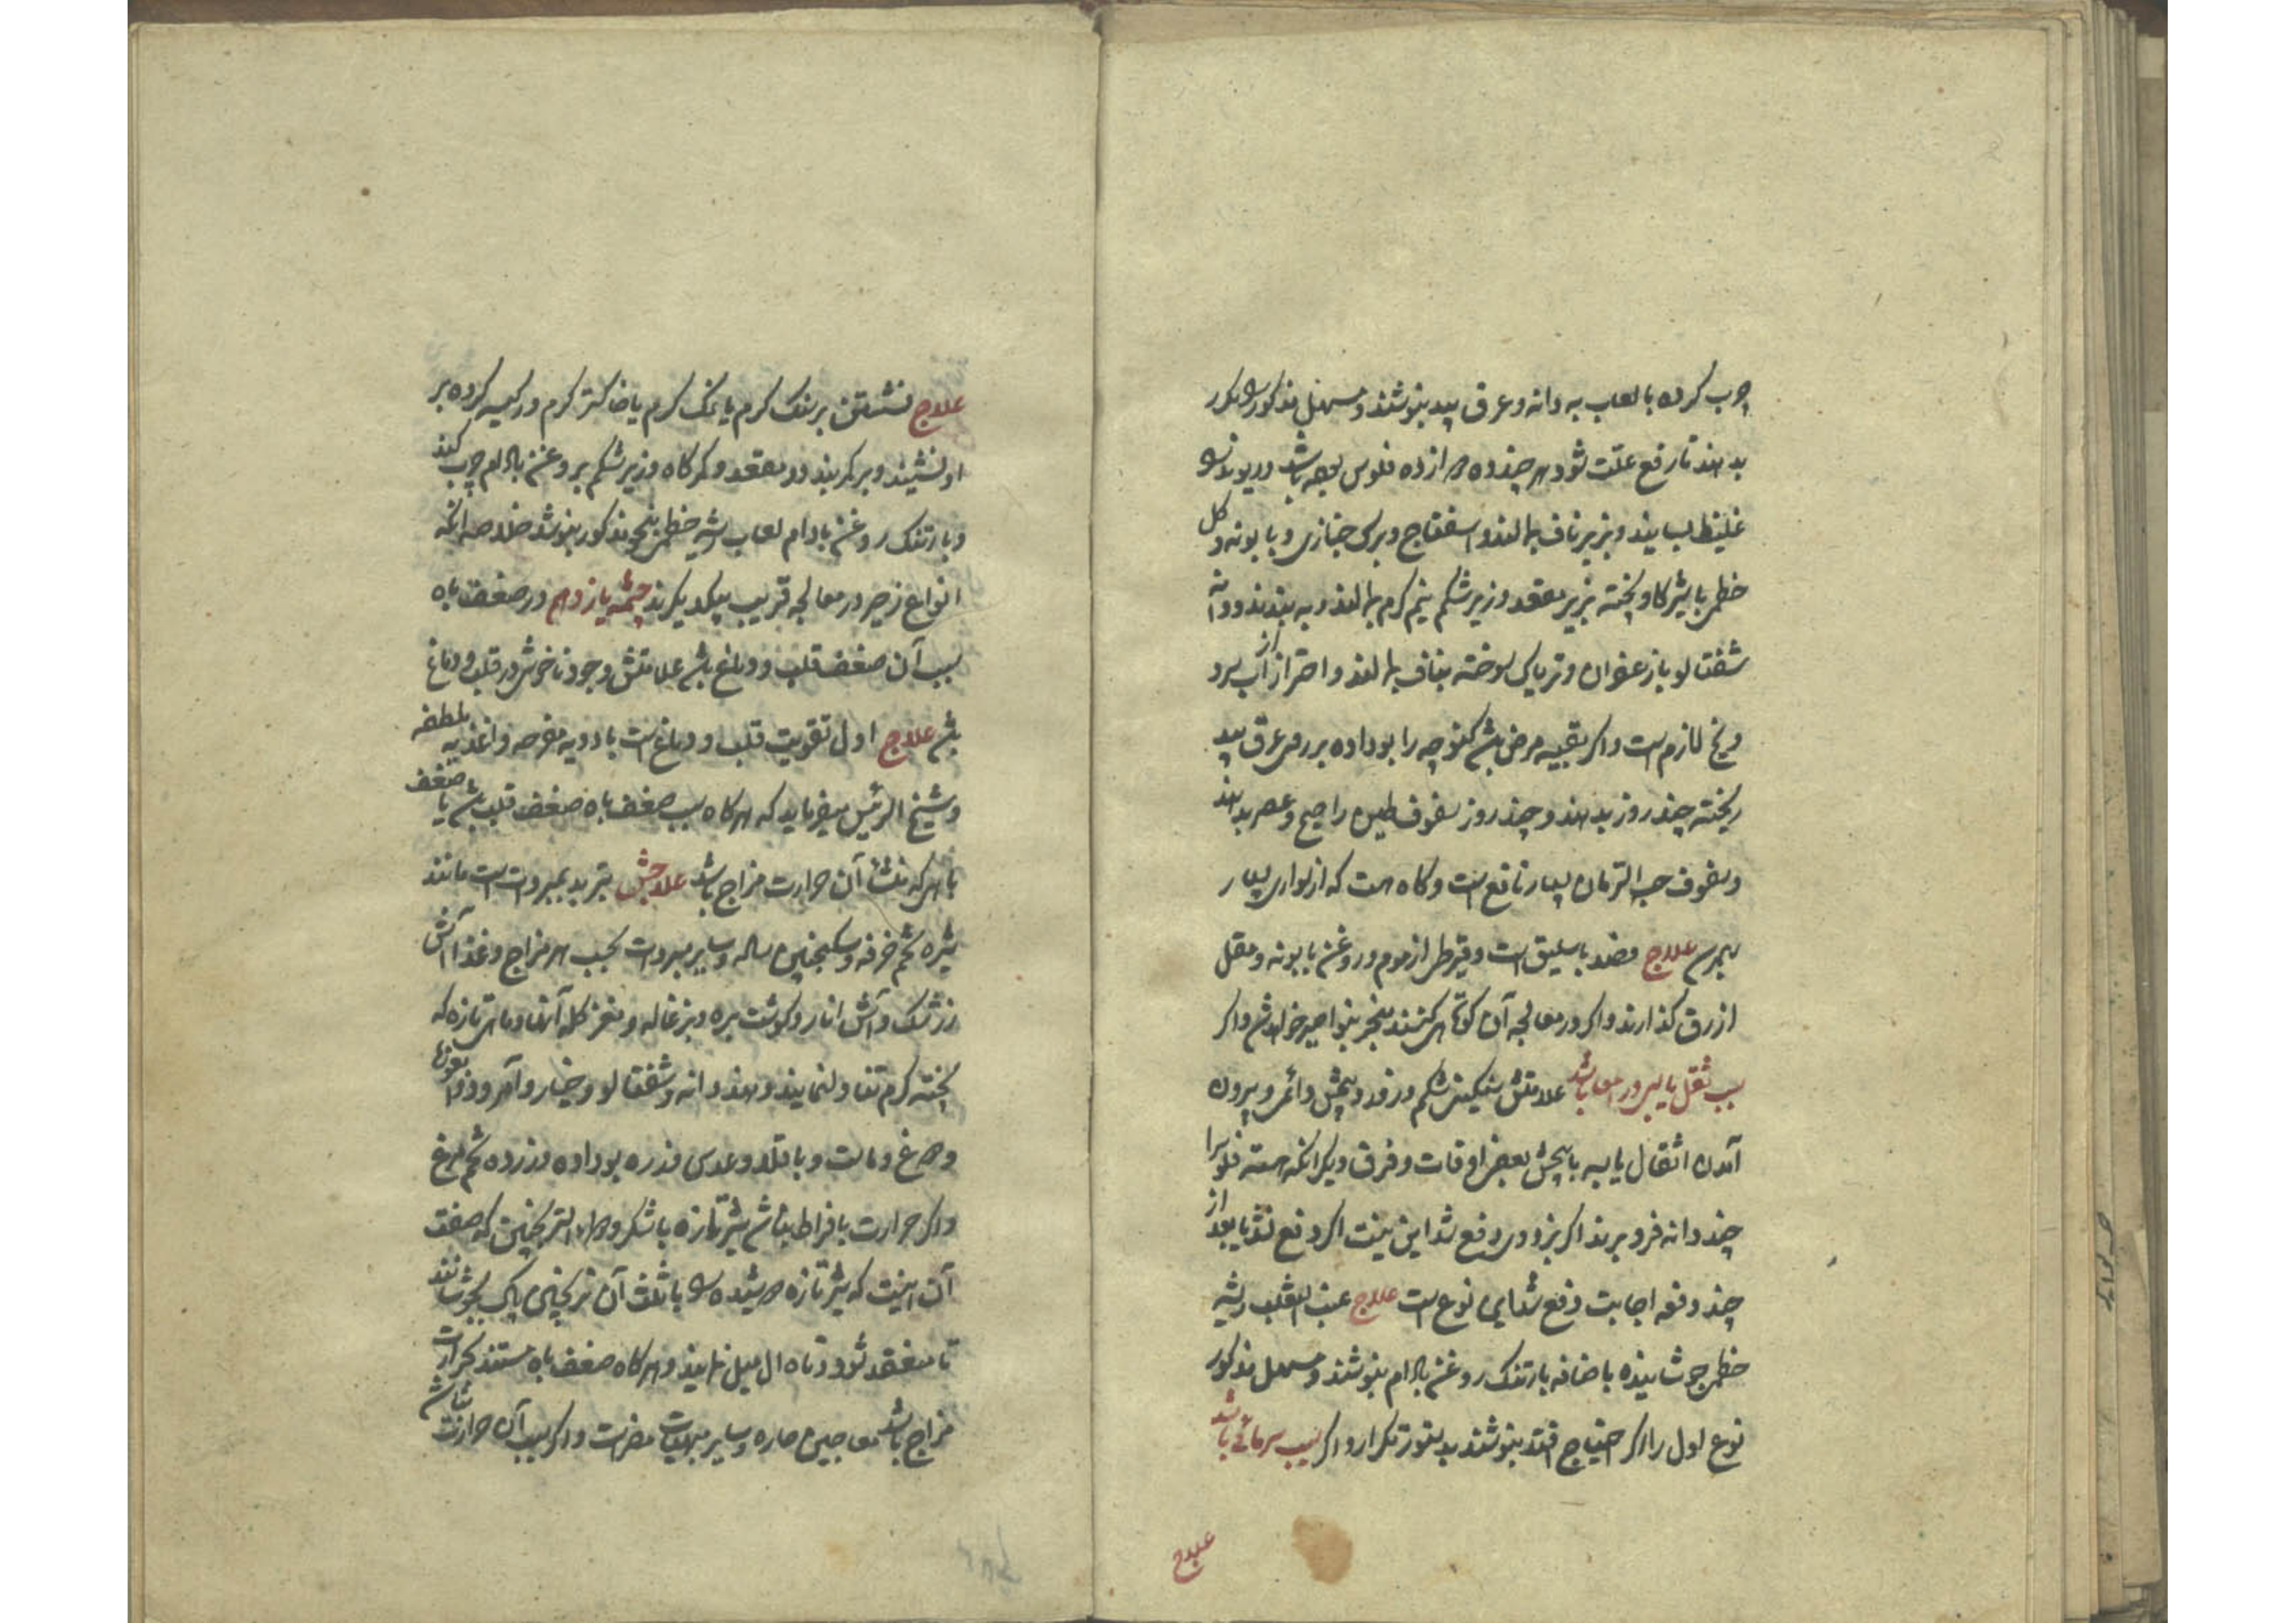 چرب کرده با لعاب به دانه و عرق بید بنوشند و مسهل مذکور مکرر
بدهند تا رفع علت شود هر چند ده از ده فلوس باشد و ریوند
غلیظ بسایند و بزیر ناف بمالند و اسفناج و برک خبازی و بابونه و کل
خطمی با شیر کاو پخته بزیر مقعد و زیر شکم نیم کرم بمالند و به بندند و دانه
شفتالو با زعفران و تریاک سوخته بناف بمالند و احتراز از آب سرد
و یخ لازمست و اکر بقیه مرض باشد کنوچه را بو داده بر روی عرق بید
ریخته چند روز بدهند و چند روز سفوف طین را صبح و عصر بدهند
و سفوف حب الرمان بسیار نافع است و کاه هست که از سواری بسیار
بهم رسد علاج فصد باسلیق است و قیروطی از موم و روغن بابونه و مقل
ازرق کذارند و اکر در معالجه آن کوتاهی کنند منجر بنواصیر خواهد شد و اکر
بسبب ثقل یابس در امعا باشد علامتش سنکینی شکم و درد و پیچش دائمی و بیرون
آمدن اثقال یابسه با پیچش بعض اوقات و فرق دیکر آنکه هسته
چند دانه فرو برند اکر بزودی دفع شد این نیست اکر دفع نشد یا بعد از
چند دفعه اجابت دفع شد این نوع است علاج عنب الثعلب و ریشه
خطمی جوشانیده باضافه بارتنک روغن بادام بنوشند و مسهل مذکور
نوع اول را اکر احتیاج افتد بنوشند بدستور تکرار و اکر بسبب سرمائی باشد
علاج
علاج نشستن بر سنک کرم یا نمک کرم یا خاکستر کرم در کیسه کرده بر
او نشینند و بر کمر بندند و مقعد و کمرکاه و زیر شکم بروغن بادام چرب کنند
و بارتنک روغن بادام لعاب ریشه خطمی بنهج مذکور بنوشد خلاصه آنکه
انواع زحیر در معالجه قریب بیکدیکرند چشمه یازدهم در ضعف باه
سبب آن ضعف قلب و دماغ باشد علامتش وجود ناخوشی در قلب و دماغ
باشد علاج اول تقویت قلب و دماغست بادویه مفرحه و اغذیه ملطفه
و شیخ الرئیس میفرماید که هرکاه سبب ضعف باه ضعف قلب باشد یا ضعف
یا هر که منشأ آن حرارت مزاج باشد علاجش تبرید بمبردات است مانند
شیره تخم خرفه و سکنجبین ساده و سایر مبردات بحسب هر مزاج و غذا آش
زرشک و آش انار و کوشت بره و بزغاله و مغز کله آنها و ماهی تازه که
پخته کرم تناول نمایند و هندوانه و شفتالو و خیار و آمرود و
و مرغ و ماست و باقلا و عدس و ذره بو داده و زرده تخم مرغ
و اکر حرارت بافراط نباشد شیر تازه با شکر و ترنجبین که صفت
آن اینست که شیر تازه دوشیده با ثلث آن ترنجبین پاک بجوشانند
تا منعقد شود و تناول میل نمایند و هرکاه ضعف باه مستند بحرارت
مزاج باشد معاجین حاره و سایر مبهیات مضر است و اکر سبب آن حرارت نباشد